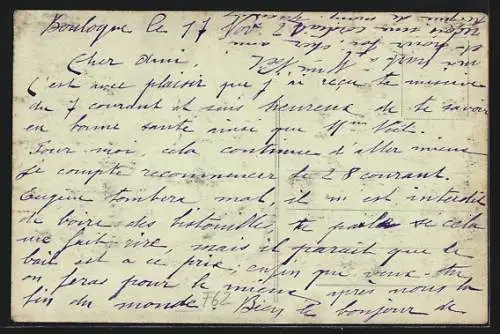 Boulogne le 17 Nov. 2
Cher ami,
C'est avec plaisir que j'ai reçu ta missive
du 7 courant et suis heureux de te savoir
en bonne santé ainsi que Mme
Pour moi, cela continue d'aller mieux
je compte recommencer le 28 courant.
Eugène tombera mal, il m'est interdit
de boire des bistouille, tu parles si cela
me fait rire, mais il paraît que le
bail est à ce prix, enfin que veux-tu
on feras pour le mieux après nous la
fin du monde. Bien le bonjour de
762